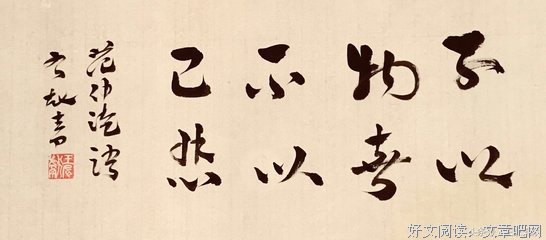 不以
物喜
不以
己悲
范仲淹语
書
好文阅读：文章吧网